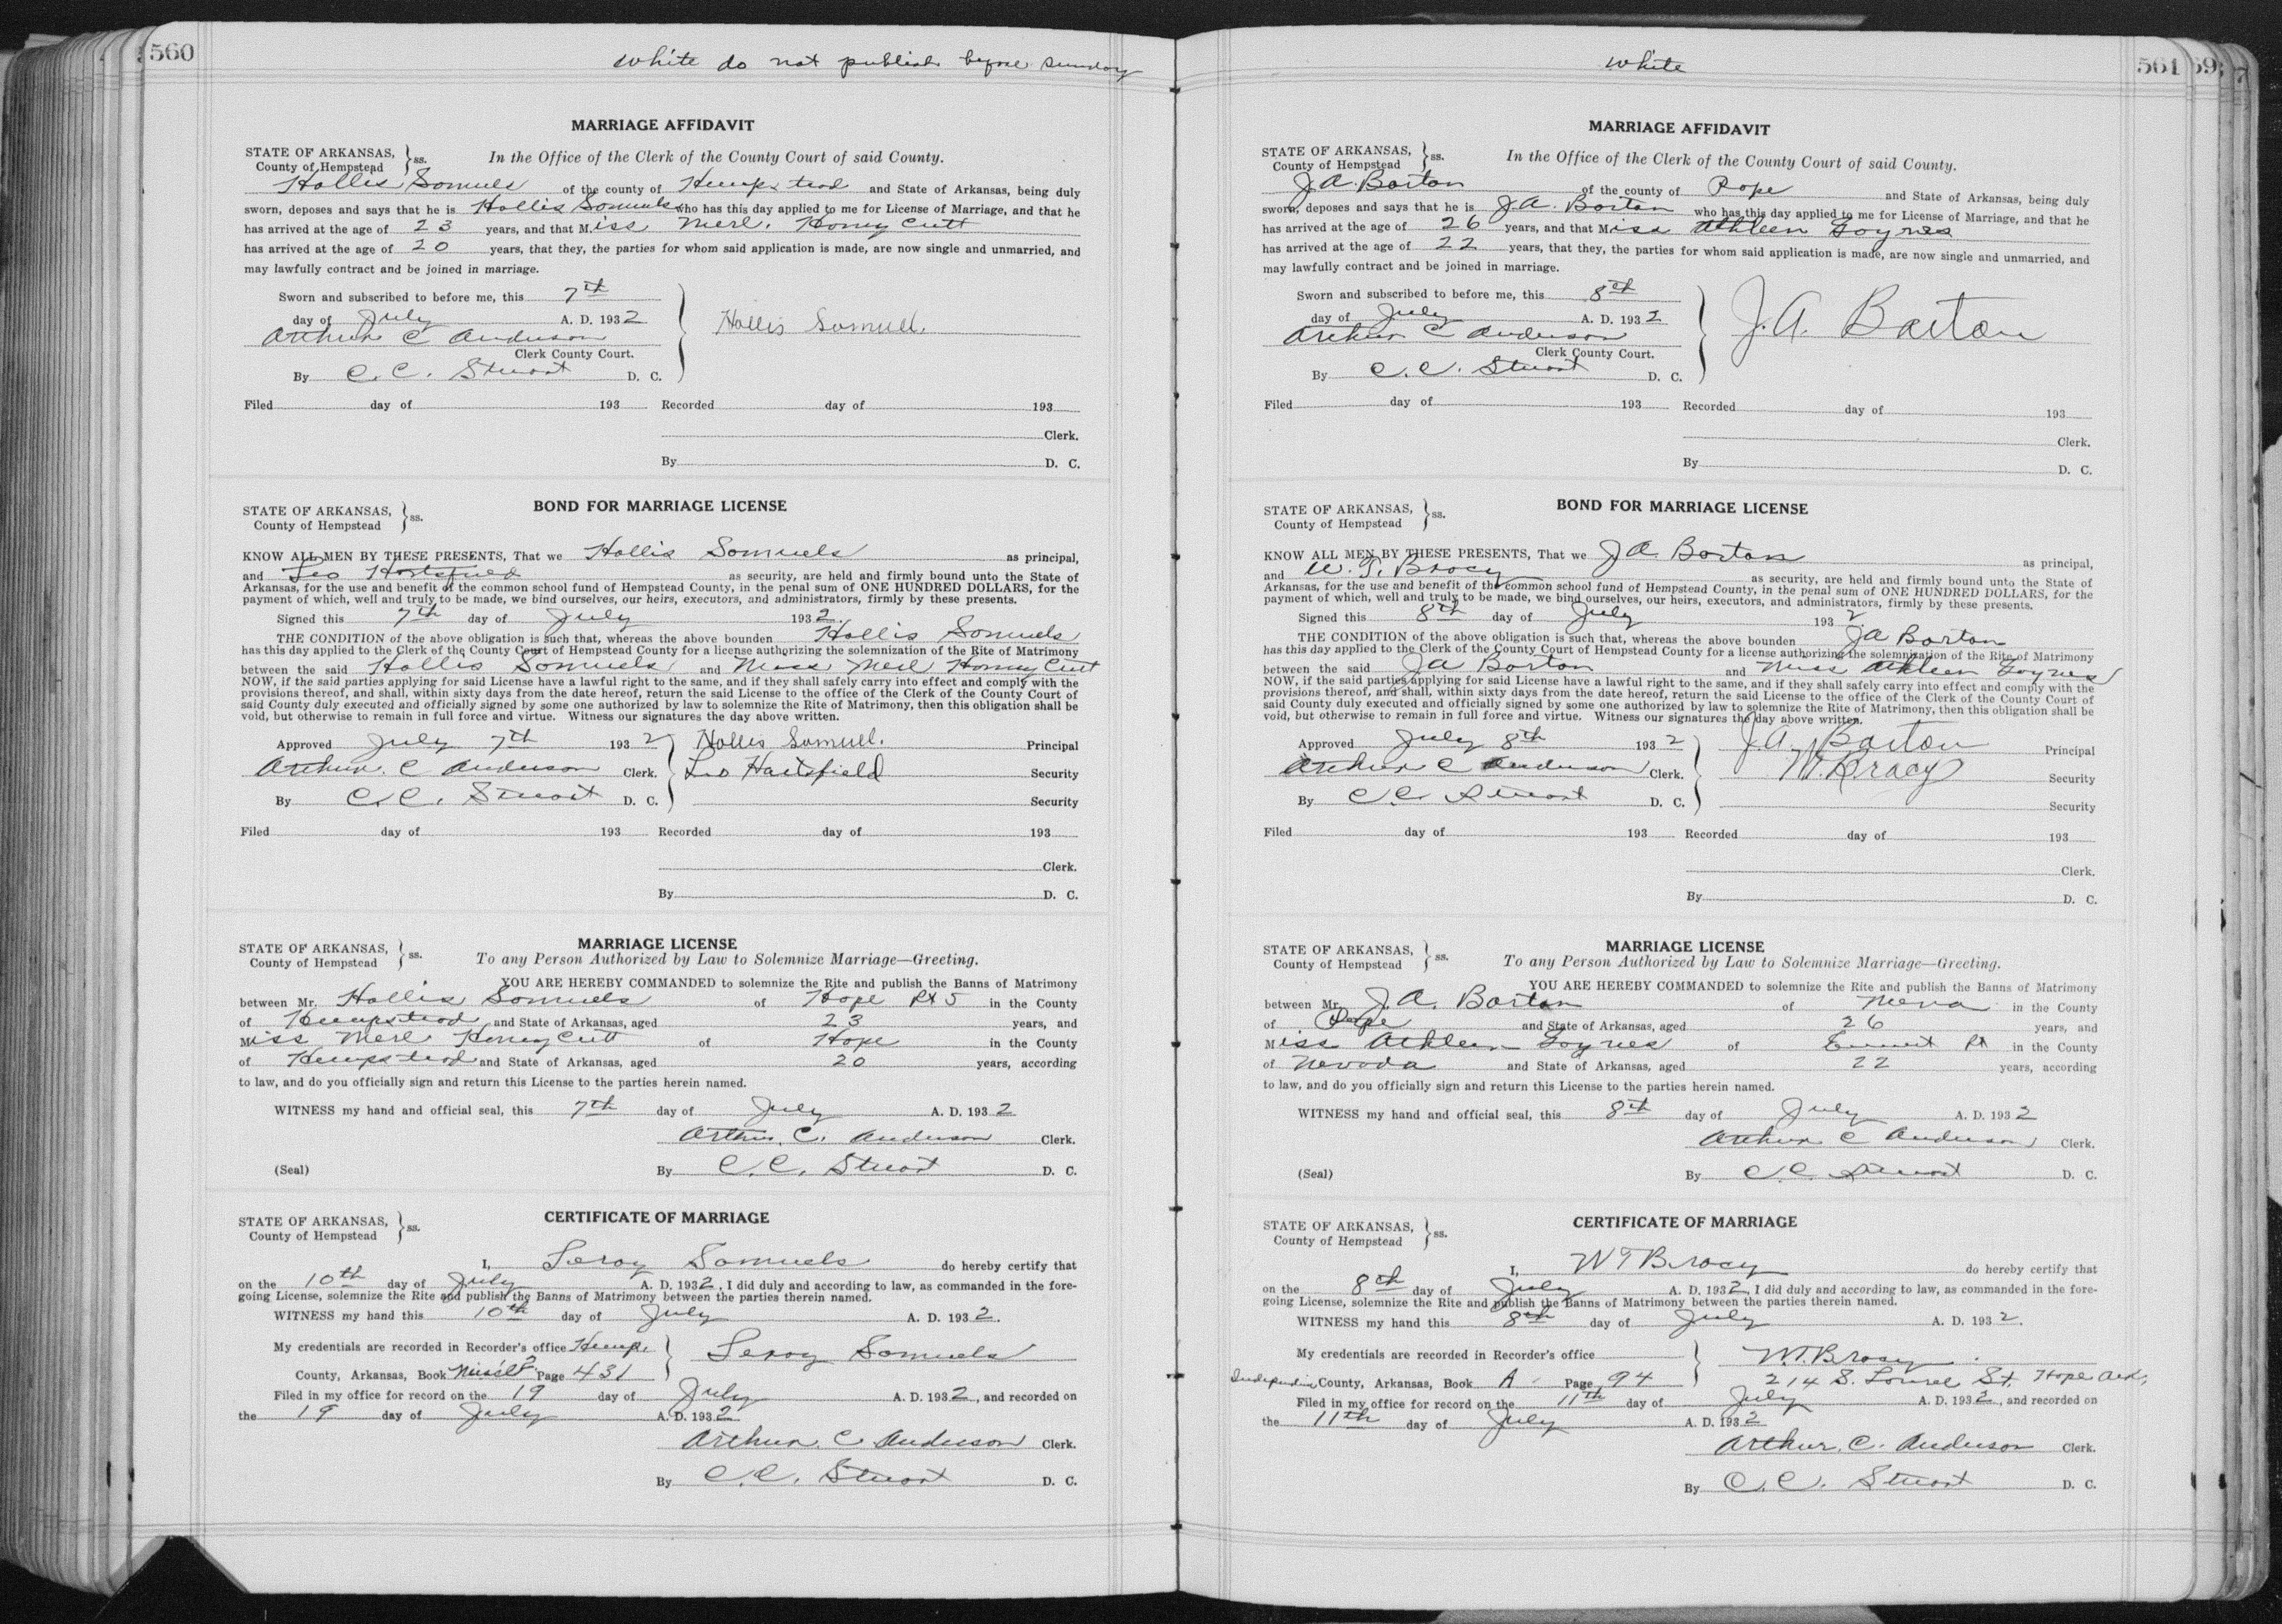 560
White do not publish before Sunday
MARRIAGE AFFIDAVIT
STATE OF ARKANSAS, County of Hempstead } ss. In the Office of the Clerk of the County Court of said County.
Hollis Samuels of the county of Hempstead and State of Arkansas, being duly
sworn, deposes and says that he is Hollis Samuels who has this day applied to me for License of Marriage, and that he
has arrived at the age of 23 years, and that Miss Merl. Honey Cutt
has arrived at the age of 20 years, that they, the parties for whom said application is made, are now single and unmarried, and
may lawfully contract and be joined in marriage.
Sworn and subscribed to before me, this 7th
day of July A. D. 1932
Hollis Samuel.
Arthur C Anderson
Clerk County Court.
By C. C. Stuart D. C.
Filed day of 193 Recorded day of 193
Clerk.
By D. C.
BOND FOR MARRIAGE LICENSE
STATE OF ARKANSAS, County of Hempstead } ss.
KNOW ALL MEN BY THESE PRESENTS, That we Hollis Samuels as principal,
and Leo Hartsfield as security, are held and firmly bound unto the State of
Arkansas, for the use and benefit of the common school fund of Hempstead County, in the penal sum of ONE HUNDRED DOLLARS, for the
payment of which, well and truly to be made, we bind ourselves, our heirs, executors, and administrators, firmly by these presents.
Signed this 7th day of July 1932.
THE CONDITION of the above obligation is such that, whereas the above bounden Hollis Samuels
has this day applied to the Clerk of the County Court of Hempstead County for a license authorizing the solemnization of the Rite of Matrimony
between the said Hollis Samuels and Miss Merl Honey Cutt
NOW, if the said parties applying for said License have a lawful right to the same, and if they shall safely carry into effect and comply with the
provisions thereof, and shall, within sixty days from the date hereof, return the said License to the office of the Clerk of the County Court of
said County duly executed and officially signed by some one authorized by law to solemnize the Rite of Matrimony, then this obligation shall be
void, but otherwise to remain in full force and virtue. Witness our signatures the day above written.
Approved July 7th 1932 Hollis Samuel. Principal
Arthur. C Anderson Clerk. Leo Hartsfield Security
By C. C. Stuart D. C. Security
Filed day of 193 Recorded day of 193
Clerk.
By D. C.
MARRIAGE LICENSE
STATE OF ARKANSAS, County of Hempstead } ss. To any Person Authorized by Law to Solemnize Marriage—Greeting.
YOU ARE HEREBY COMMANDED to solemnize the Rite and publish the Banns of Matrimony
between Mr. Hollis Samuels of Hope Rt 5 in the County
of Hempstead and State of Arkansas, aged 23 years, and
Miss Merl Honey Cutt of Hope in the County
of Hempstead and State of Arkansas, aged 20 years, according
to law, and do you officially sign and return this License to the parties herein named.
WITNESS my hand and official seal, this 7th day of July A. D. 1932
Arthur. C. Anderson Clerk.
(Seal) By C. C. Stuart D. C.
CERTIFICATE OF MARRIAGE
STATE OF ARKANSAS, County of Hempstead } ss.
I, Leroy Samuels do hereby certify that
on the 10th day of July A. D. 1932, I did duly and according to law, as commanded in the fore-
going License, solemnize the Rite and publish the Banns of Matrimony between the parties therein named.
WITNESS my hand this 10th day of July A. D. 1932.
My credentials are recorded in Recorder's office Hemp. Leroy Samuels
County, Arkansas, Book Page 431
Filed in my office for record on the 19 day of July A. D. 1932, and recorded on
the 19 day of July A. D. 1932
Arthur. C Anderson Clerk.
By C. C. Stuart D. C.
561
White
MARRIAGE AFFIDAVIT
STATE OF ARKANSAS, County of Hempstead } ss. In the Office of the Clerk of the County Court of said County.
J. A. Barton of the county of Pope and State of Arkansas, being duly
sworn, deposes and says that he is J. A. Barton who has this day applied to me for License of Marriage, and that he
has arrived at the age of 26 years, and that Miss Athleen Loynes
has arrived at the age of 22 years, that they, the parties for whom said application is made, are now single and unmarried, and
may lawfully contract and be joined in marriage.
Sworn and subscribed to before me, this 8th
day of July A. D. 1932
J. A. Barton
Arthur C Anderson
Clerk County Court.
By C. C. Stuart D. C.
Filed day of 193 Recorded day of 193
Clerk.
By D. C.
BOND FOR MARRIAGE LICENSE
STATE OF ARKANSAS, County of Hempstead } ss.
KNOW ALL MEN BY THESE PRESENTS, That we J A. Barton as principal,
and W. T. Bracy as security, are held and firmly bound unto the State of
Arkansas, for the use and benefit of the common school fund of Hempstead County, in the penal sum of ONE HUNDRED DOLLARS, for the
payment of which, well and truly to be made, we bind ourselves, our heirs, executors, and administrators, firmly by these presents.
Signed this 8th day of July 1932
THE CONDITION of the above obligation is such that, whereas the above bounden J A Barton
has this day applied to the Clerk of the County Court of Hempstead County for a license authorizing the solemnization of the Rite of Matrimony
between the said J A Barton and Miss Athleen Loynes
NOW, if the said parties applying for said License have a lawful right to the same, and if they shall safely carry into effect and comply with the
provisions thereof, and shall, within sixty days from the date hereof, return the said License to the office of the Clerk of the County Court of
said County duly executed and officially signed by some one authorized by law to solemnize the Rite of Matrimony, then this obligation shall be
void, but otherwise to remain in full force and virtue. Witness our signatures the day above written.
Approved July 8th 1932 J. A. Barton Principal
Arthur C Anderson Clerk. W. Bracy Security
By C C Stuart D. C. Security
Filed day of 193 Recorded day of 193
Clerk.
By D. C.
MARRIAGE LICENSE
STATE OF ARKANSAS, County of Hempstead } ss. To any Person Authorized by Law to Solemnize Marriage—Greeting.
YOU ARE HEREBY COMMANDED to solemnize the Rite and publish the Banns of Matrimony
between Mr. J. A. Barton of in the County
of Pope and State of Arkansas, aged 26 years, and
Miss Athleen Loynes of Emmet Rt in the County
of Nevada and State of Arkansas, aged 22 years, according
to law, and do you officially sign and return this License to the parties herein named.
WITNESS my hand and official seal, this 8th day of July A. D. 1932
Arthur C Anderson Clerk.
(Seal) By C. C Stuart D. C.
CERTIFICATE OF MARRIAGE
STATE OF ARKANSAS, County of Hempstead } ss.
I, W T Bracy do hereby certify that
on the 8th day of July A. D. 1932, I did duly and according to law, as commanded in the fore-
going License, solemnize the Rite and publish the Banns of Matrimony between the parties therein named.
WITNESS my hand this 8th day of July A. D. 1932.
My credentials are recorded in Recorder's office W. T. Bracy.
County, Arkansas, Book A Page 94 214 S. Laurel St. Hope Ark,
Filed in my office for record on the 11th day of July A. D. 1932, and recorded on
the 11th day of July A. D. 1932
Arthur. C. Anderson Clerk.
By C. C. Stuart D. C.